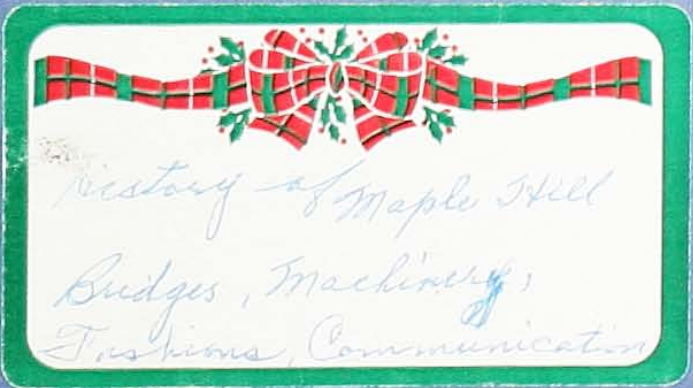 History of Maple Hill
Bridges, Machinery,
Fashions, Communication